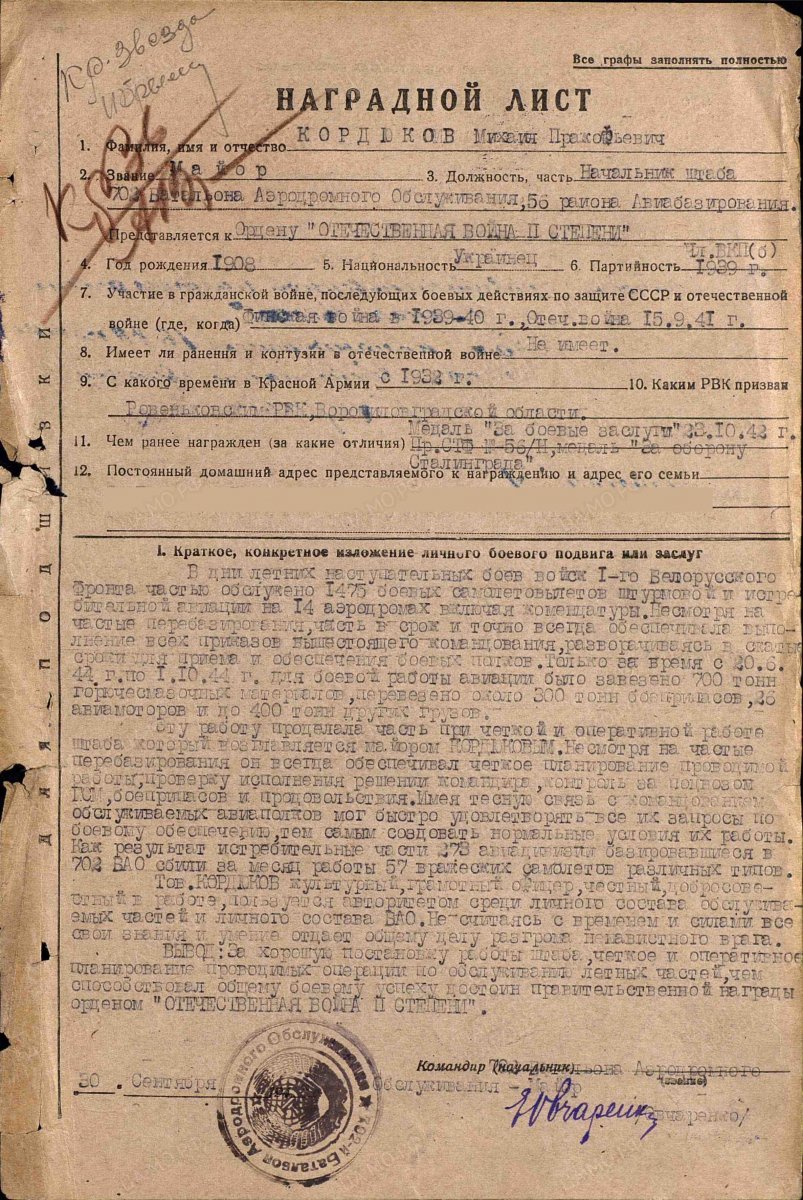 Кр. Звезда
Все графы заполнять полностью
НАГРАДНОЙ ЛИСТ
1. Фамилия, имя и отчество КОРДЮКОВ Михаил Пракофьевич
2. Звание Майор 3. Должность, часть Начальник штаба
702 Батальона Аэродромного Обслуживания, 56 района Авиабазирования.
Представляется к Ордену "ОТЕЧЕСТВЕННАЯ ВОЙНА П СТЕПЕНИ"
4. Год рождения 1908 5. Национальность Украинец 6. Партийность Чл.ВКП(б) 1939 г.
7. Участие в гражданской войне, последующих боевых действиях по защите СССР и отечественной
войне (где, когда) Финская война в 1939-40 г.,Отеч.война 15.9.41 г.
8. Имеет ли ранения и контузии в отечественной войне Не имеет.
9. С какого времени в Красной Армии с 1932 г. 10. Каким РВК призван
Ровеньковским РВК, Ворошиловградской области.
11. Чем ранее награжден (за какие отличия) Медаль "За боевые заслуги" 23.10.42 г.
Пр.СТФ №-56/Н, медаль "За оборону
Сталинграда"
12. Постоянный домашний адрес представляемого к награждению и адрес его семьи
ДЛЯ ПОДШИВКИ
1. Краткое, конкретное изложение личного боевого подвига или заслуг
В дни летних наступательных боев войск 1-го Белорусского
Фронта частью обслужено 1475 боевых самолетовылетов штурмовой и истре-
бительной авиации на 14 аэродромах включая комендатуры. Несмотря на
частые перебазирования, часть в срок и точно всегда обеспечивала выпо-
лнение всех приказов вышестоящего командования, разворачиваясь в сжатые
сроки для приема и обеспечения боевых полков. Только за время с 20.6.
44 г. по 1.10.44 г. для боевой работы авиации было завезено 700 тонн
горючесмазочных материалов, перевезено около 300 тонн боеприпасов, 26
авиамоторов и до 400 тонн других грузов.
Эту работу проделала часть при четкой и оперативной работе
штаба который возглавляется майором КОРДЮКОВЫМ. Несмотря на частые
перебазирования он всегда обеспечивал четкое планирование проводимой
работы, проверку исполнения решении командира, контроль за подвозом
ГСМ, боеприпасов и продовольствия. Имея тесную связь с командованием
обслуживаемых авиаполков мог быстро удовлетворять все их запросы по
боевому обеспечению, тем самым создовать нормальные условия их работы.
Как результат истребительные части 278 авиадивизии базировавшиеся в
702 БАО сбили за месяц работы 57 вражеских самолетов различных типов.
Тов. КОРДЮКОВ культурный, грамотный офицер, честный, добросове-
стный в работе, пользуется авторитетом среди личного состава обслужива-
емых частей и личного состава БАО. Не считаясь с временем и силами все
свои знания и умение отдает общему делу разгрома ненавистного врага.
ВЫВОД: За хорошую постановку работы штаба, четкое и оперативное
планирование проводимых операции по обслуживанию летных частей, чем
способствовал общему боевому успеху достоин правительственной награды
орденом "ОТЕЧЕСТВЕННАЯ ВОЙНА П СТЕПЕНИ".
Командир (начальник) 702 Батальона Аэродромного
(звание)
30. Сентября Обслуживания - Майор
Овчаренко
/Овчаренко/
702-й Батальон Аэродромного Обслуживания